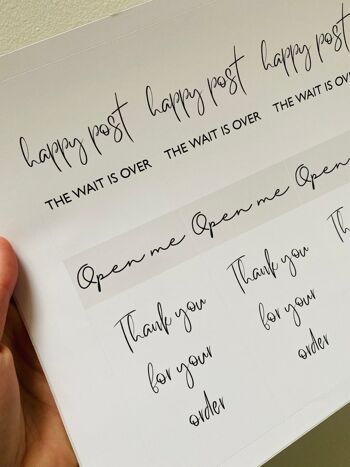 happy post happy post happy post
THE WAIT IS OVER THE WAIT IS OVER THE WAIT IS OV
Open me Open me Open
Thank you Thank you Th
for your for your
order order